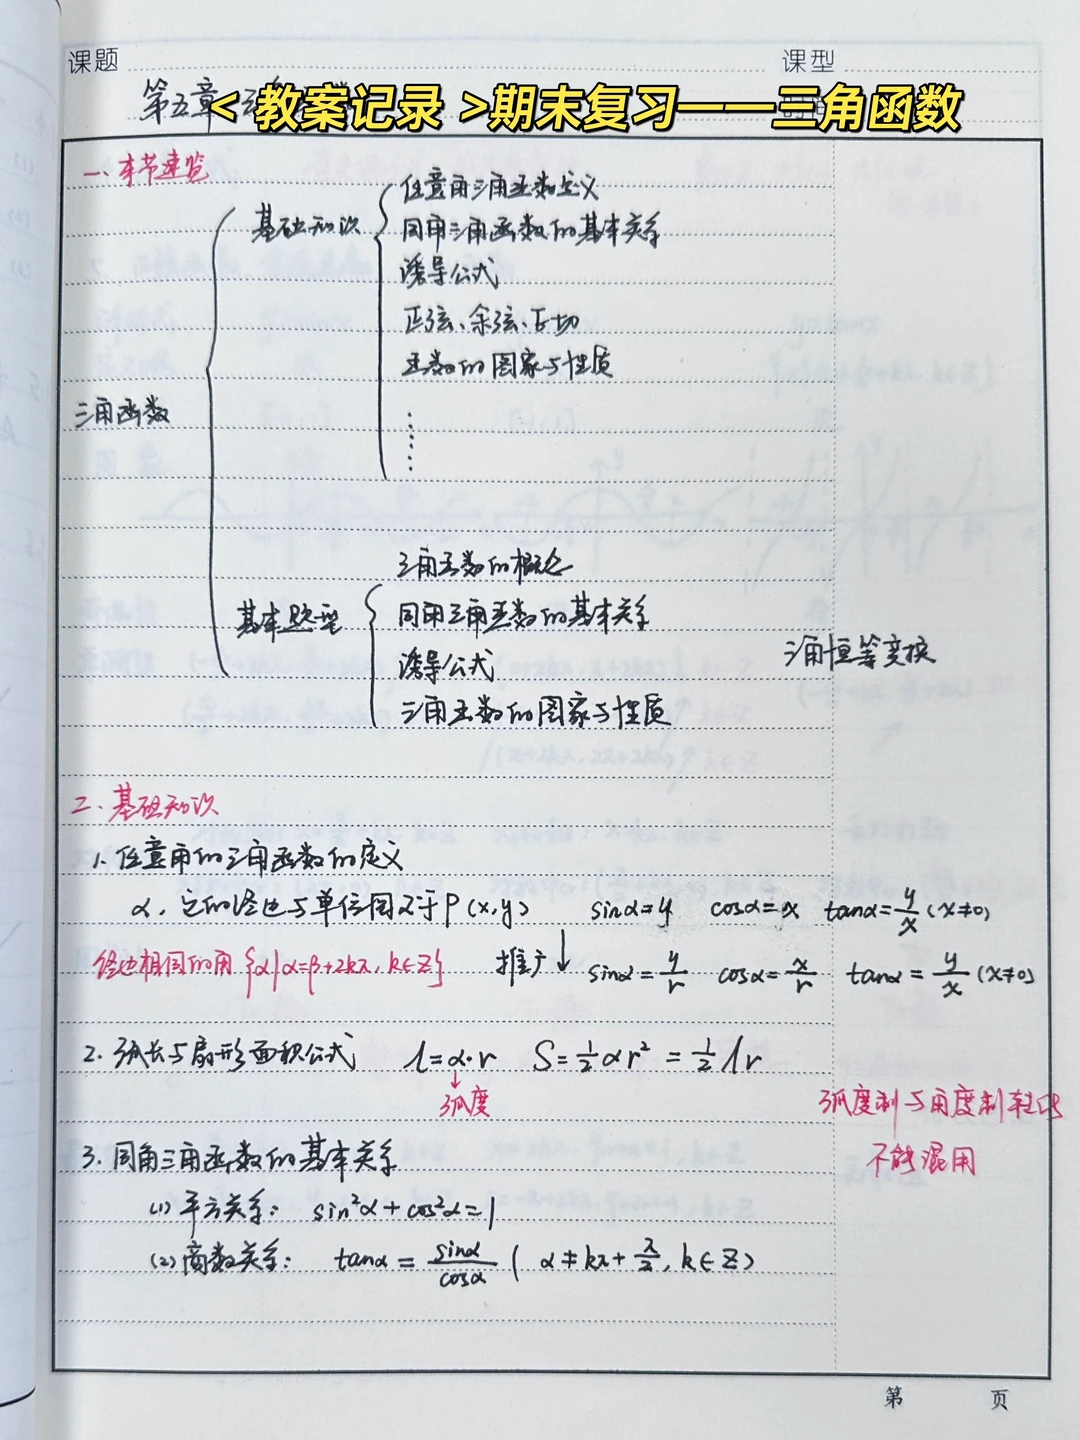 课题 课型
第五章
<教案记录>期末复习——三角函数
一、本节速览
三角函数
基础知识
任意角三角函数定义
同角三角函数的基本关系
诱导公式
正弦、余弦、正切
函数的图象与性质
⋮
基本题型
三角函数的概念
同角三角函数的基本关系
诱导公式
三角函数的图象与性质
三角恒等变换
二、基础知识
1、任意角的三角函数的定义
α，它的终边与单位圆交于P(x,y) sinα=y cosα=x tanα=y/x (x≠0)
终边相同的角 {α|α=β+2kπ, k∈Z} 推广↓ sinα=y/r cosα=x/r tanα=y/x (x≠0)
2、弧长与扇形面积公式 l=α·r S=½αr²=½lr
↓
弧度
弧度制与角度制
不能混用
3、同角三角函数的基本关系
(1)平方关系： sin²α+cos²α=1
(2)商数关系： tanα=sinα/cosα ( α≠kπ+π/2, k∈Z)
第 页